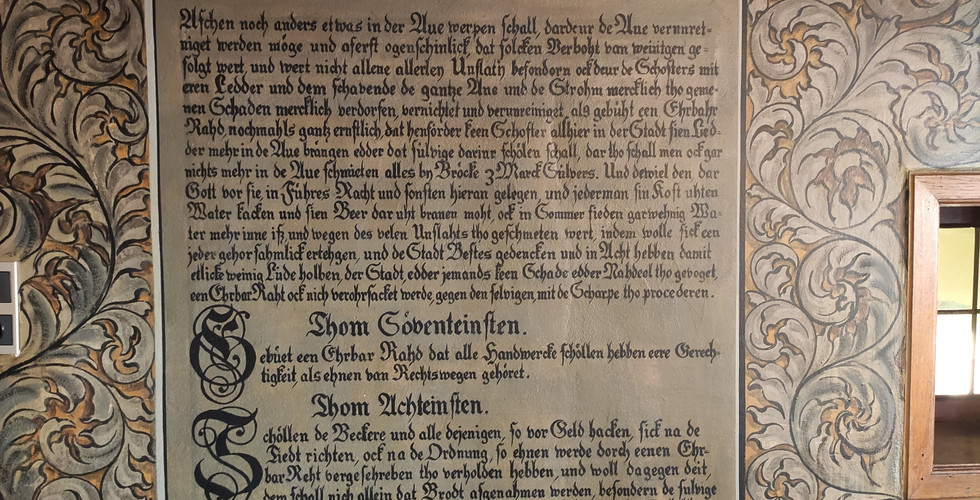 Aschen noch anders etwas in der Aue werpen schall, dardeur de Aue verunrei-
niget werden möge und aferst ogenschinlick, dat solcken Verboht van weinigen ge-
folgt wert, und wert nicht allene allerley Unflath besondern ock deur de Schosters mit
eren Ledder und dem schavende de gantze Aue und de Strohm mercklich tho geme-
nen Schaden mercklich verdorfen, vernichtet und verunreiniget, als gebüht een Ehrbahr
Rahd, nochmahls gantz ernstlich, dat henförder keen Schoster allhier in der Stadt sien Led-
der mehr in de Aue brängen edder dat sülvige darinr schölen schall, dar tho schall men ock gar
nichts mehr in de Aue schmieten alles by Bröcke 3 Marck Sülvers. Und dewiel den, dar
Gott vor sie, in Führes Nacht und sonsten hieran gelegen, und jederman sin Kost uhten
Water kacken und sien Beer dar uht brauen moht, ock in Sommer sieden gar wehnig Wa-
ter mehr inne iß, und wegen des velen Unflahts tho geschmeten wert, indem wolle sick een
jeder gehorsahmlick ertehgen, und de Stadt Bestes gedencken und in Acht hebben damit
etlicke weinig Lüde holben, der Stadt edder jemands keen Schade edder Nahdeel tho gevoget,
een Ehrbar Raht ock nich verohrsacket werde, gegen den selvigen mit de Scharpe tho procederen.
Thom Söventeinsten.
Gebüet een Ehrbar Rahd dat alle Handwercke schöllen hebben eere Gerech-
tigkeit als ehnen van Rechtswegen gehöret.
Thom Achteinsten.
Schöllen de Beckere und alle dejenigen, so vor Geld backen, sick na de
Tiedt richten, ock na de Ordnung, so ehnen werde dorch eenen Ehr-
bar Reht vorgeschreben tho verholden hebben, und woll dagegen deit,
dem schall nich allein dat Brodt afgenahmen werden, besondern de sulvige